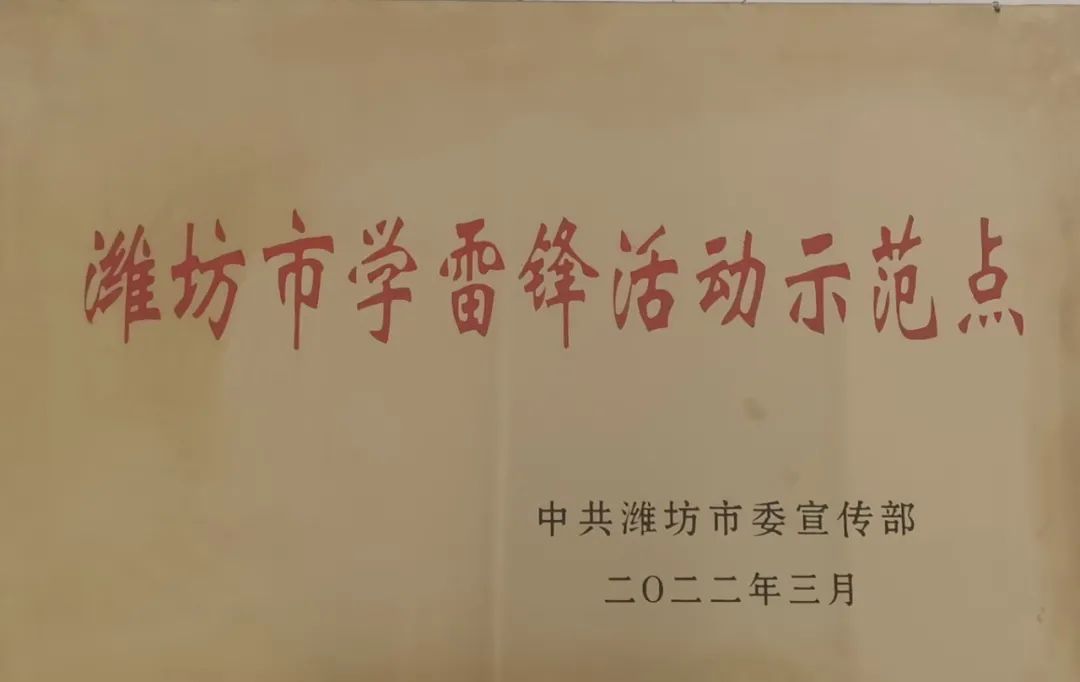 潍坊市学雷锋活动示范点
中共潍坊市委宣传部
二〇二二年三月